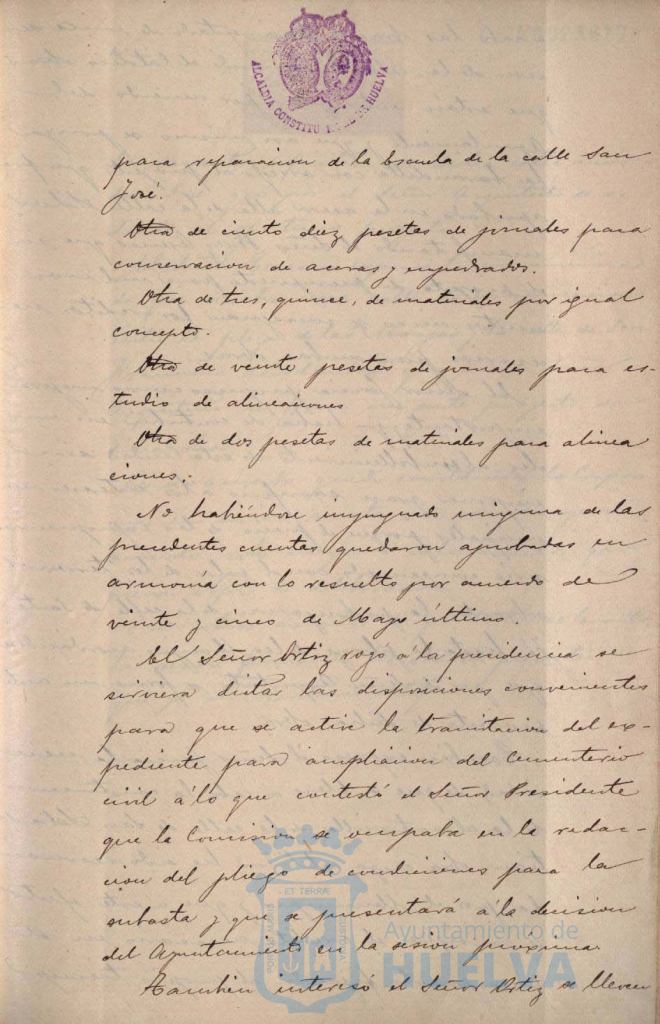 ALCALDIA CONSTITU AL DE HUELVA
para reparacion de la Escuela de la calle San
José.
Otra de ciento diez pesetas de jornales para
conservacion de aceras y empedrados.
Otra de tres, quince, de materiales por igual
concepto.
Otra de veinte pesetas de jornales para es-
tudio de alineaciones
Otra de dos pesetas de materiales para alinea
ciones.
No habiéndose impugnado ninguna de las
precedentes cuentas quedaron aprobadas en
armonía con lo resuelto por acuerdo de
veinte y cinco de Mayo último.
El Señor Ortiz rogó á la presidencia se
sirviera dictar las disposiciones convenientes
para que se active la tramitacion del ex-
pediente para ampliacion del Cementerio
civil á lo que contestó el Señor Presidente
que la Comision se ocupaba en la redac-
cion del pliego de condiciones para la
subasta y que se presentará á la decision
del Ayuntamiento en la sesion proxima.
Tambien interesó el Señor Ortiz se lleven
ET TERRÆ
Ayuntamiento de
HUELVA